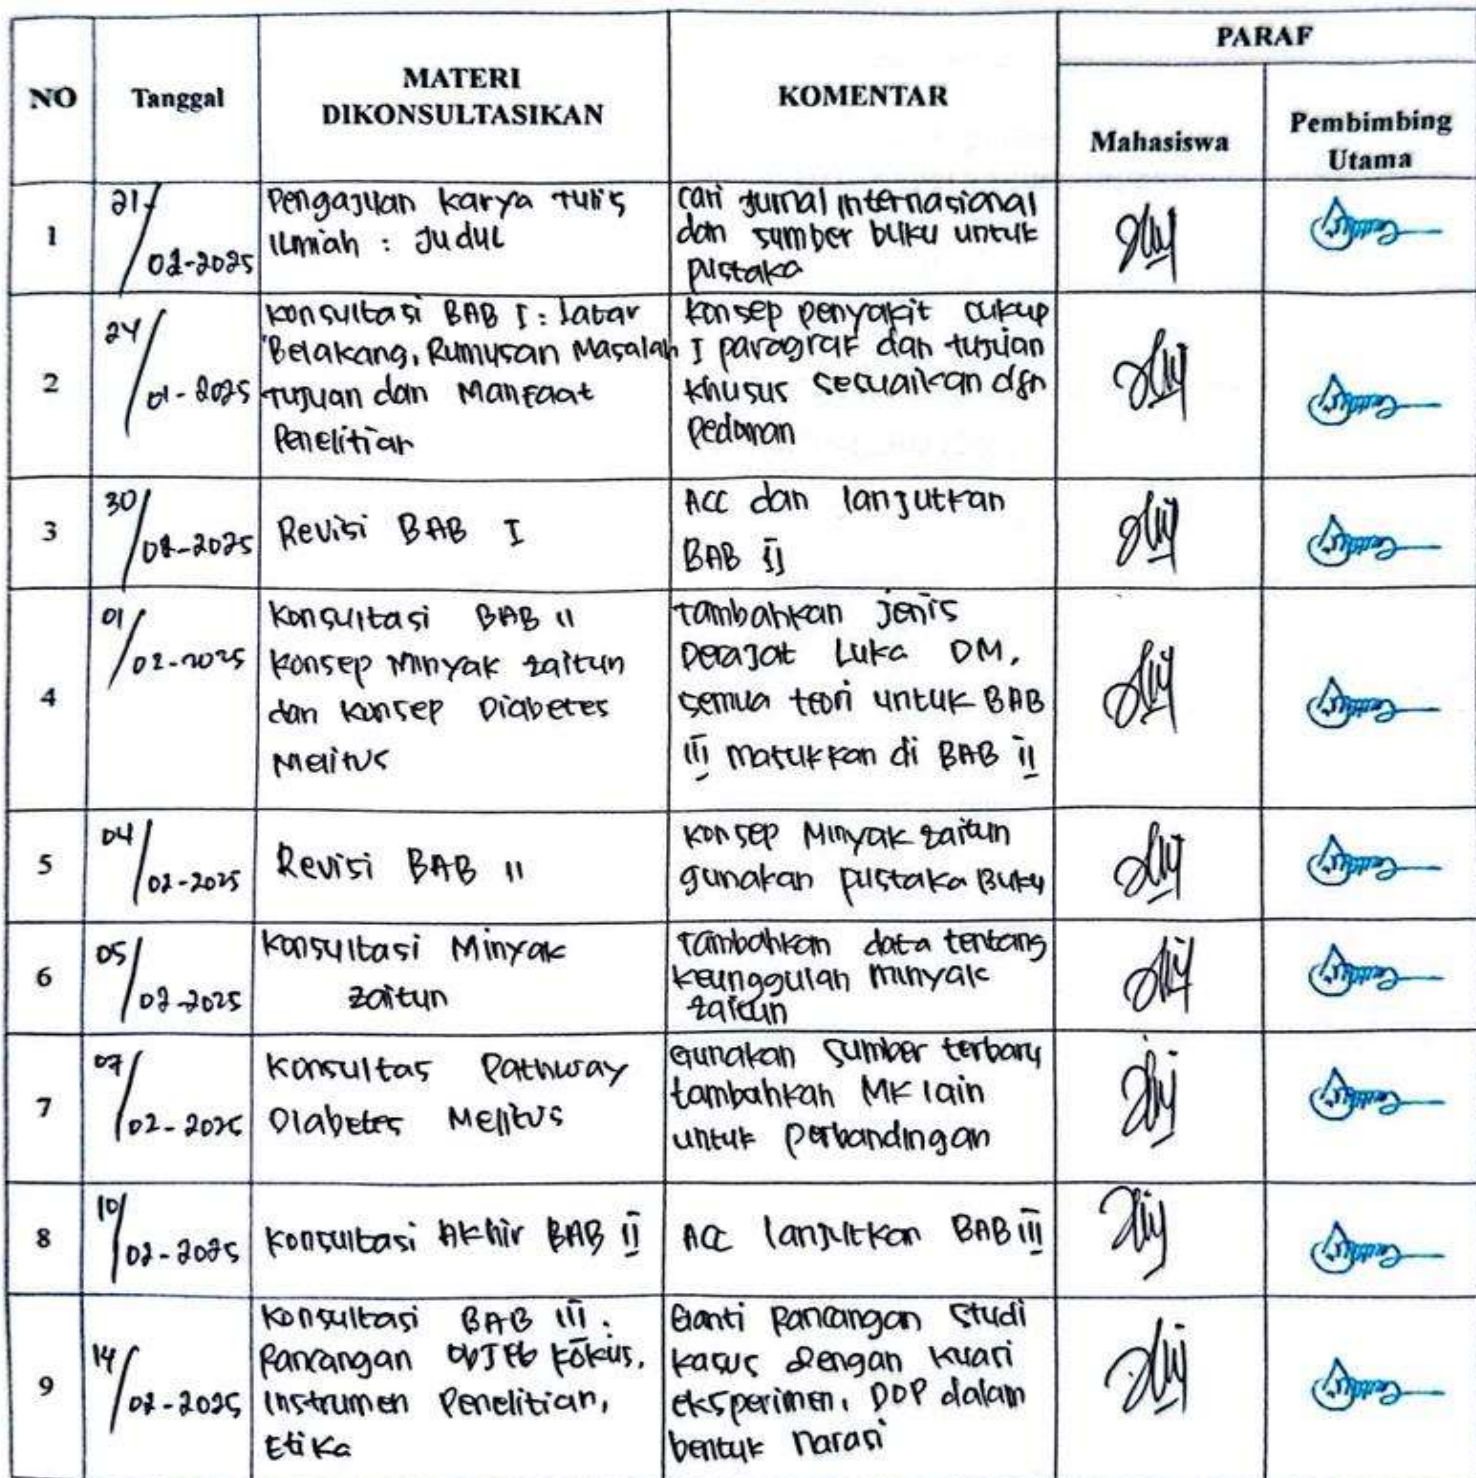 PARAF
NO
Tanggal
MATERI
DIKONSULTASIKAN
KOMENTAR
Mahasiswa
Pembimbing
Utama
1
21/
-2025
Pengajuan karya tulis
ilmiah : Judul
cari jurnal internasional
dan sumber buku untuk
pustaka
2
24/
01-2025
Konsultasi BAB I : latar
Belakang, Rumusan Masalah
tujuan dan Manfaat
Penelitian
Konsep penyakit cukup
I paragraf dan tujuan
khusus sesuaikan dgn
pedoman
3
30/
-2025
Revisi BAB I
Acc dan lanjutkan
BAB II
4
01/
02-2025
Konsultasi BAB II
Konsep Minyak zaitun
dan Konsep Diabetes
Melitus
tambahkan jenis
Derajat Luka DM,
semua teori untuk BAB
III masukkan di BAB II
5
04/
02-2025
Revisi BAB II
Konsep Minyak zaitun
gunakan pustaka Buku
6
05/
02-2025
Konsultasi Minyak
zaitun
tambahkan data tentang
keunggulan minyak
zaitun
7
07/
02-2025
Konsultas Pathway
Diabetes Melitus
Gunakan sumber terbaru
tambahkan MK lain
untuk perbandingan
8
10/
02-2025
Konsultasi Akhir BAB II
ACC lanjutkan BAB III
9
14/
02-2025
Konsultasi BAB III :
Rancangan fokus,
Instrumen Penelitian,
Etika
Ganti Rancangan studi
kasus dengan kuasi
eksperimen, DOP dalam
bentuk narasi